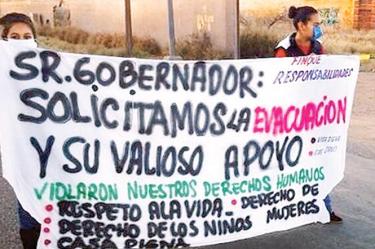 FINQUE
RESPONSABILIDADES
SR. GOBERNADOR:
SOLICITAMOS LA EVACUACIÓN
Y SU VALIOSO APOYO
• VIDA DIGNA
VIOLARON NUESTROS DERECHOS HUMANOS
• RESPETO A LA VIDA - • DERECHO DE
• DERECHO DE LOS NIÑOS MUJERES
• CASA DIGNA